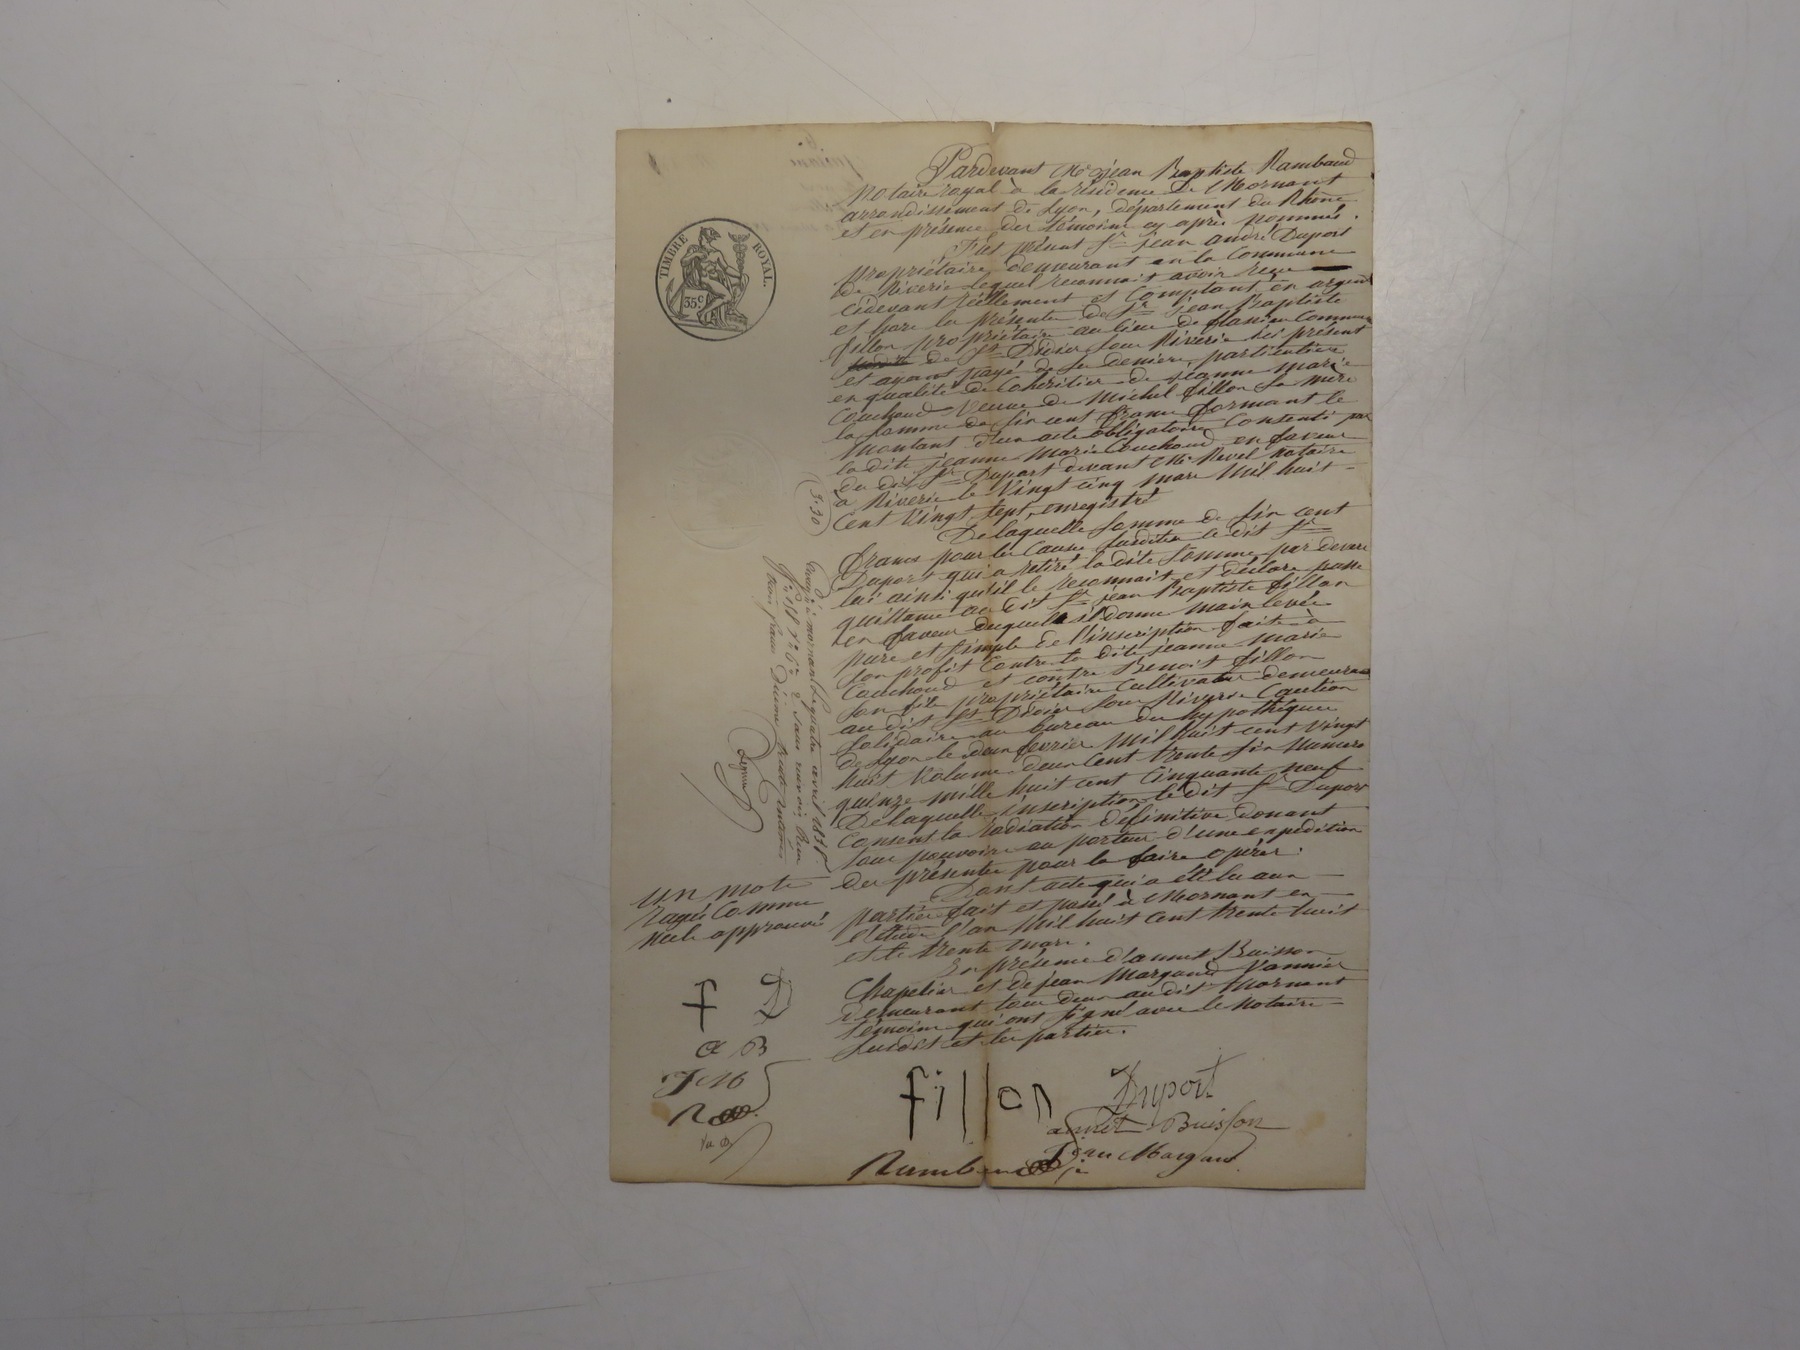 TIMBRE ROYAL.
35c
Pardevant Me jean Baptiste Rambaud
Notaire royal à la résidence de Mornant
arrondissement de Lyon, département du Rhône
et en présence des témoins cy après nommés.
Fut présent Sr jean andré Duport
propriétaire demeurant en la Commune
de Riverie lequel reconnait avoir reçu
cidevant réellement et Comptant en argent
et hors la présente de Sr jean Baptiste
fillon propriétaire au lieu de Commune
de St Didier sous Riverie ici présent
et ayant payé de ses deniers particuliers
en qualité de Cohéritier de jeanne marie
Couchoud Veuve de Michel fillon sa mère
la somme de six cent francs formant le
montant d'un acte obligatoire Contenti par
la dite jeanne Marie Couchoud en faveur
du dit Sr Duport devant Me Revel Notaire
à Riverie le Vingt cinq mars Mil huit
Cent Vingt Sept, enregistré
De laquelle somme de six cent
francs pour les Causes susdites le dit Sr
Duport qui a retiré la dite somme par devers
lui ainsi qu'il le reconnait et déclare passe
quittance au dit Sr jean Baptiste fillon
en faveur duquel il donne main levée
pure et simple de l'inscription faite à
son profit Contre la dite jeanne Marie
Couchoud et contre Benoit fillon
son fils propriétaire Cultivateur demeurant
au dit St Didier sous Riverie Caution
solidaire au bureau des hypothèques
de Lyon le deux fevrier Mil huit cent Vingt
huit Volume deux Cent trente six Numero
quinze mille huit cent Cinquante neuf
De laquelle inscription le dit Sr Duport
Consent la Radiation définitive donant
tous pouvoirs au porteur d'une expédition
des présentes pour la faire opérer.
Dont acte qui a été lu aux
parties fait et passé à Mornant en
l'étude l'an Mil huit Cent trente huit
et le trente mars.
En présence d'annet Buisson
Chapelier et de jean Margand Vannier
demeurant tous deux au dit Mornant
témoins qui ont signé avec le Notaire
susdit et les parties.
3.30
Enregistré à mornant le quatre avril 1838
fo 181 Vo Co 2 sans renvoi Reçu
trois francs Décime trente centimes
un mot
rayé Comme
nul approuvé
f D
a B
J M
R
Vu
fillon Duport
annet Buisson
Jean Margand
Rambaud